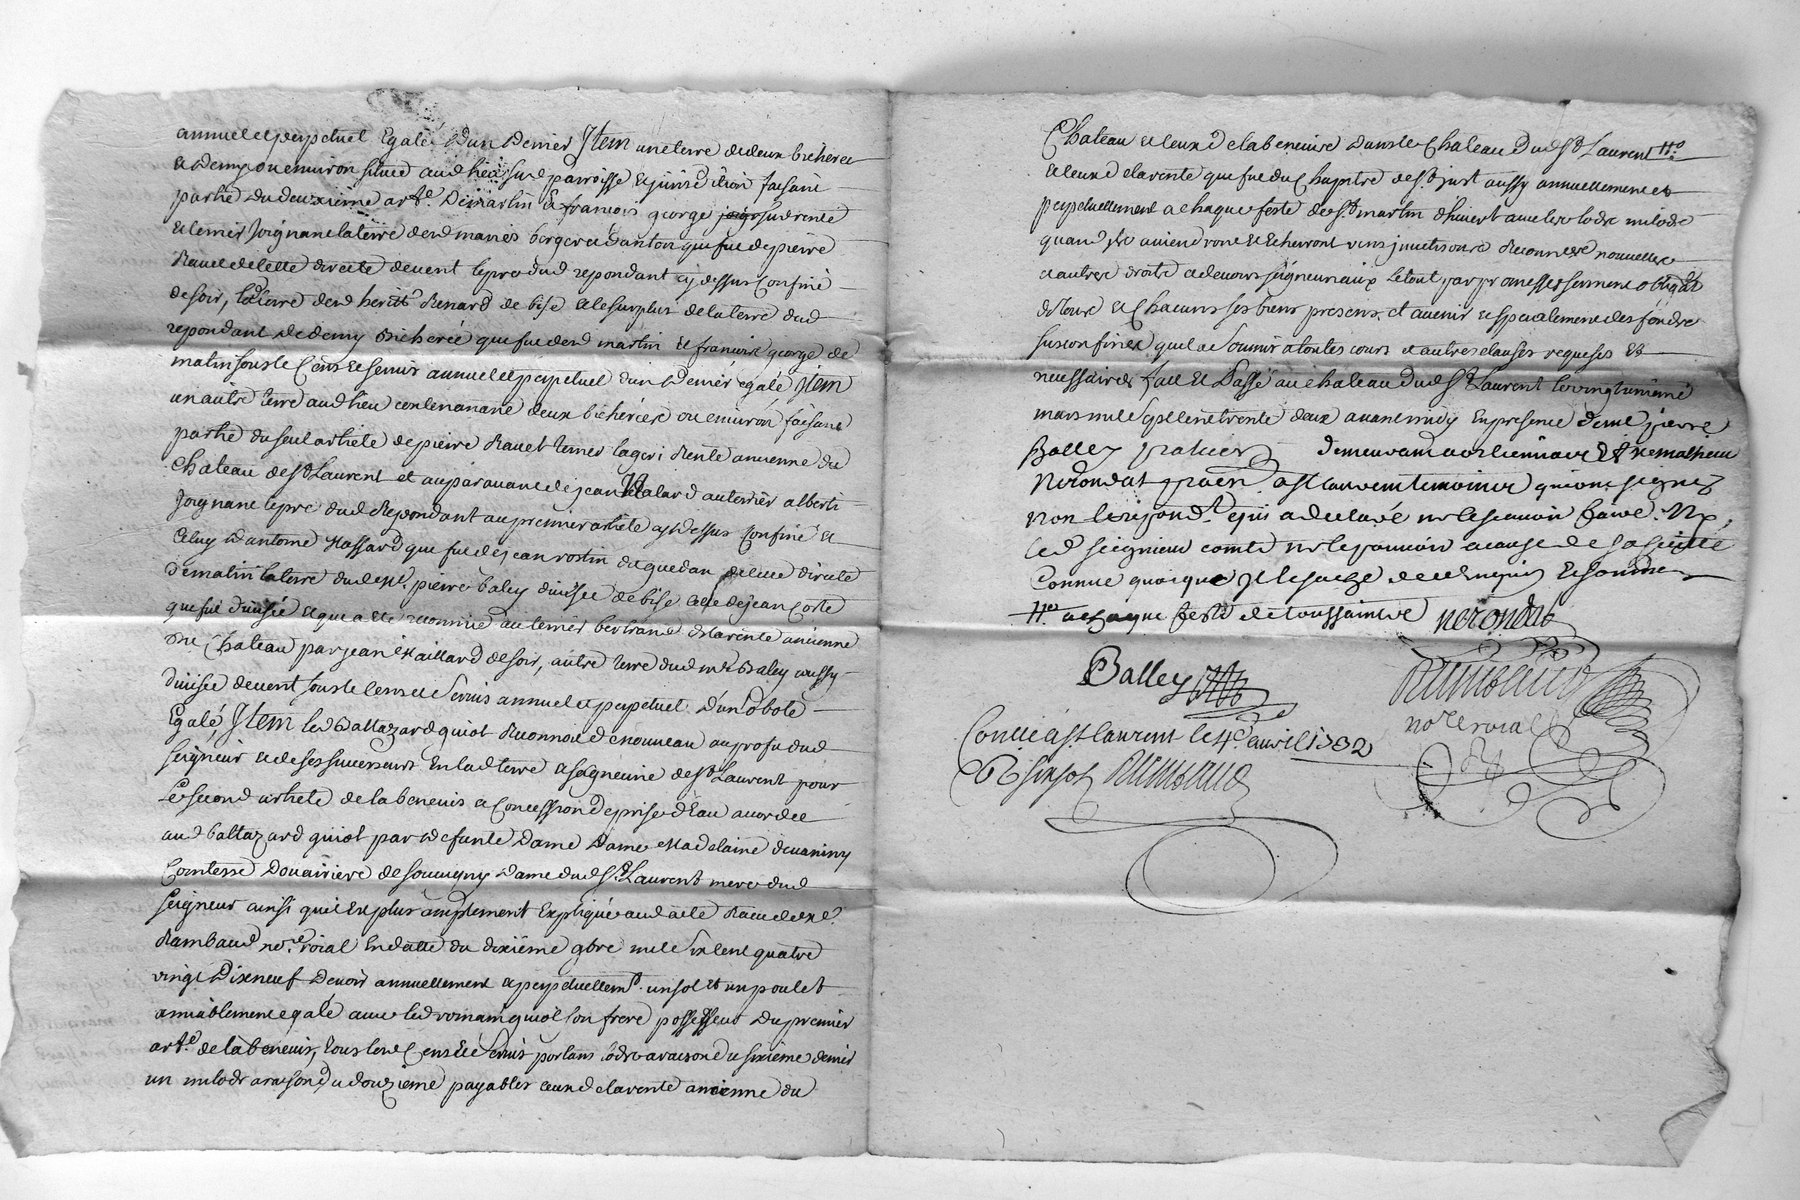 annuel et perpetuel Egalé d'un Denier Jtem une terre de deux bicherees
et Demy ou environ situeé aud lieu susd parroisse et jurisdiction faisant
partie du deuxieme arte. De martin et francois george rente
et terrier Joignant la terre desd mariés berger et danton que fut de pierre
Ravet de cette directe de vent le pre dud repondant cy dessus Confiné
de soir, la terre desd heritrs Renard de bise et le surplus de la terre dud
repondant de demy Bicherée que fut desd martin et francois george de
matin sous le Cens et servis annuel et perpetuel d'un Denier egalé Jtem
un autre terre aud lieu contenant deux bicherées ou environ faisant
partie du seul article de pierre Ravet terrier lageri Rente ancienne du
Chateau de St Laurent et auparavant de jean au terrier alberti
Joignant le pre dud Repondant au premier article cy dessus Confiné et
Celuy d'antoine Massard que fut de jean rostin de lad directe
De matin la terre dud Mr. pierre baley divisée de bise celle de jean Coste
que fut divisée et que a eté reconnue au terrier bertrand de la rente ancienne
du Chateau par jean Maillard de soir, autre terre dud mr Baley aussy
Divisée de vent sous le Cens et Servis annuel et perpetuel d'un obole
Egalé, Jtem led Baltazard quiot Reconnoit de nouveau au profit dud
Seigneur et de ses successeurs En lad terre et seigneurie de St Laurent pour
Le second article de la benevis et Concession de prise d'Eau accordée
aud baltazard quiot par defunte Dame Dame Madelaine
Comtesse Douairiere de souvigny Dame dud St. Laurent mere dud
Seigneur ainsi qu'il Est plus amplement Expliqué aud acte Receu de Me.
Rambaud nore. roial En datte du dixième 9bre mil six cent quatre
vingt Dixneuf Devoir annuellement et perpetuellemt. un sol et un poulet
amiablement egalé avec led romain quiot son frere possesseur du premier
arte. de la benevis, tous lesd Cens et Servis portans lods a raison du sixième denier
un milods a raison du douzieme payables ceux de la rente ancienne du
Chateau et ceux de la benevise dans le Chateau dud St Laurent
et ceux de la rente que fut du Chapitre de St. just aussy annuellement et
perpetuellement a chaque feste de St martin d'hivert avec les lods milods
quand ils aviendront et Echerront Reconnoitre nouvelles
et autres droits et devoirs seigneuriaux Le tout par promesses serment obligaon
de tous et Chacuns ses biens presens, et avenir et specialement des fonds
susconfinés qu'il a Soumis a toutes cours et autres clauses requises Et
necessaires fait et Passé au chateau dud St Laurent le vingt
mars mil sept cent trente deux avant midy En presence de me pierre
Balley praticien demeurant a Et
Nerondat praen a St Laurent temoins qui ont signez
non le repondt. qui a declaré ne le scavoir faire
led seigneur comte ne le pouvoir a cause de sa
Connue quoique
a chaque feste de toussaints nerondat
Balley
Rambaud
nore roial
Conllé a St laurent le 4e. avril 1732
R Six sol Rambaud